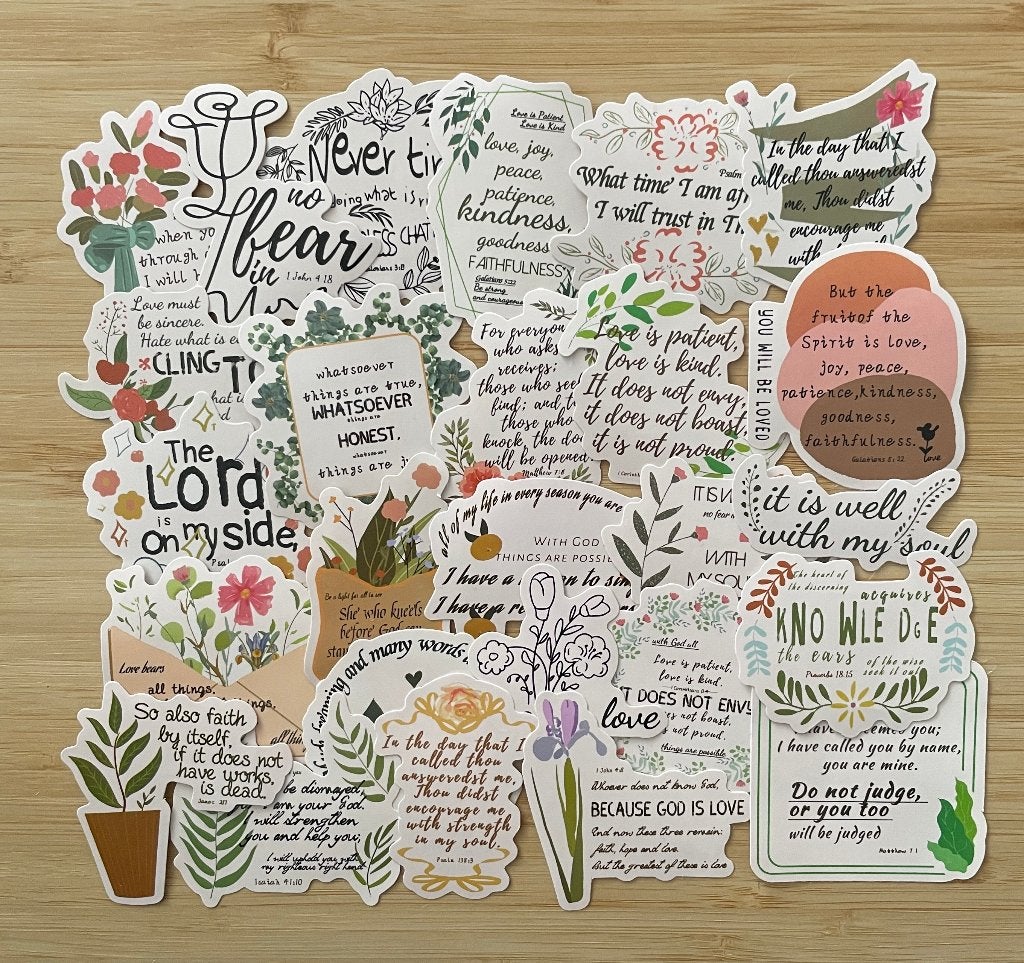 when yo
through
I will
no
fear
in
1 John 4:18
Never tir
doing what is
Galatians
Love is Patient,
Love is Kind
love, joy,
peace,
patience,
kindness,
goodness
FAITHFULNESS
Galatians 5:22
Be strong
and courageous
Psalm
What time' I am af
I will trust in T
In the day that I
called thou answeredst
me, Thou didst
encourage me
with
Love must
be sincere.
Hate what is e
CLING TO
what is
whatsoever
things are true,
WHATSOEVER
things are
HONEST,
whatsoever
things are j
For everyon
who asks
receives;
those who see
find; and t
those who
knock, the do
will be opened
Matthew 7:8
Love is patient,
love is kind.
It does not envy,
it does not boast,
it is not proud
1 Corint
YOU WILL BE LOVED
But the
fruit of the
Spirit is love,
joy, peace,
patience, kindness,
goodness,
faithfulness.
Galatians 5:22
love
The
Lord
is
on my side,
Psal
Be a light for all to see
She' who kneels
before' God can
stan
all of my life in every season you are
WITH GOD
THINGS ARE POSSIB
I have a
n to sin
I have a re
IT IS
no fear
WITH
MY SOUL
it is well
with my soul
Love bears
all things,
things.
all thin
ning and many words
1:5 with God all
Love is patient,
love is kind.
IT DOES NOT ENVY
es not boast,
ot proud.
things are possible
love
The heart of
the discerning
acquires
KNOWLEDGE
the ears
of the wise
seek it out
Proverbs 18:15
So also faith
by itself,
if it does not
have works,
is dead.
James 2:17
be dismayed,
am your God.
will strengthen
you and help you;
I will uphold you with
my righteous right hand
Isaiah 41:10
In the day that I
called thou
answeredst me,
Thou didst
encourage me
with strength
in my soul.
Psalm 138:3
1 John 4:8
Whoever does not know God,
BECAUSE GOD IS LOVE
And now these three remain:
faith, hope and love.
But the greatest of these is love
emed you;
I have called you by name,
you are mine.
Do not judge,
or you too
will be judged
Matthew 7:1